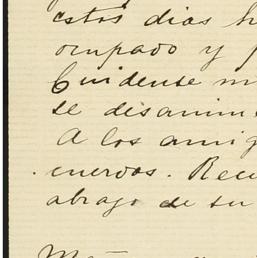 estos dias h
ocupado y p
Cuidense m
se desanim
A los amig
cuerdos. Recu
abrazo de su